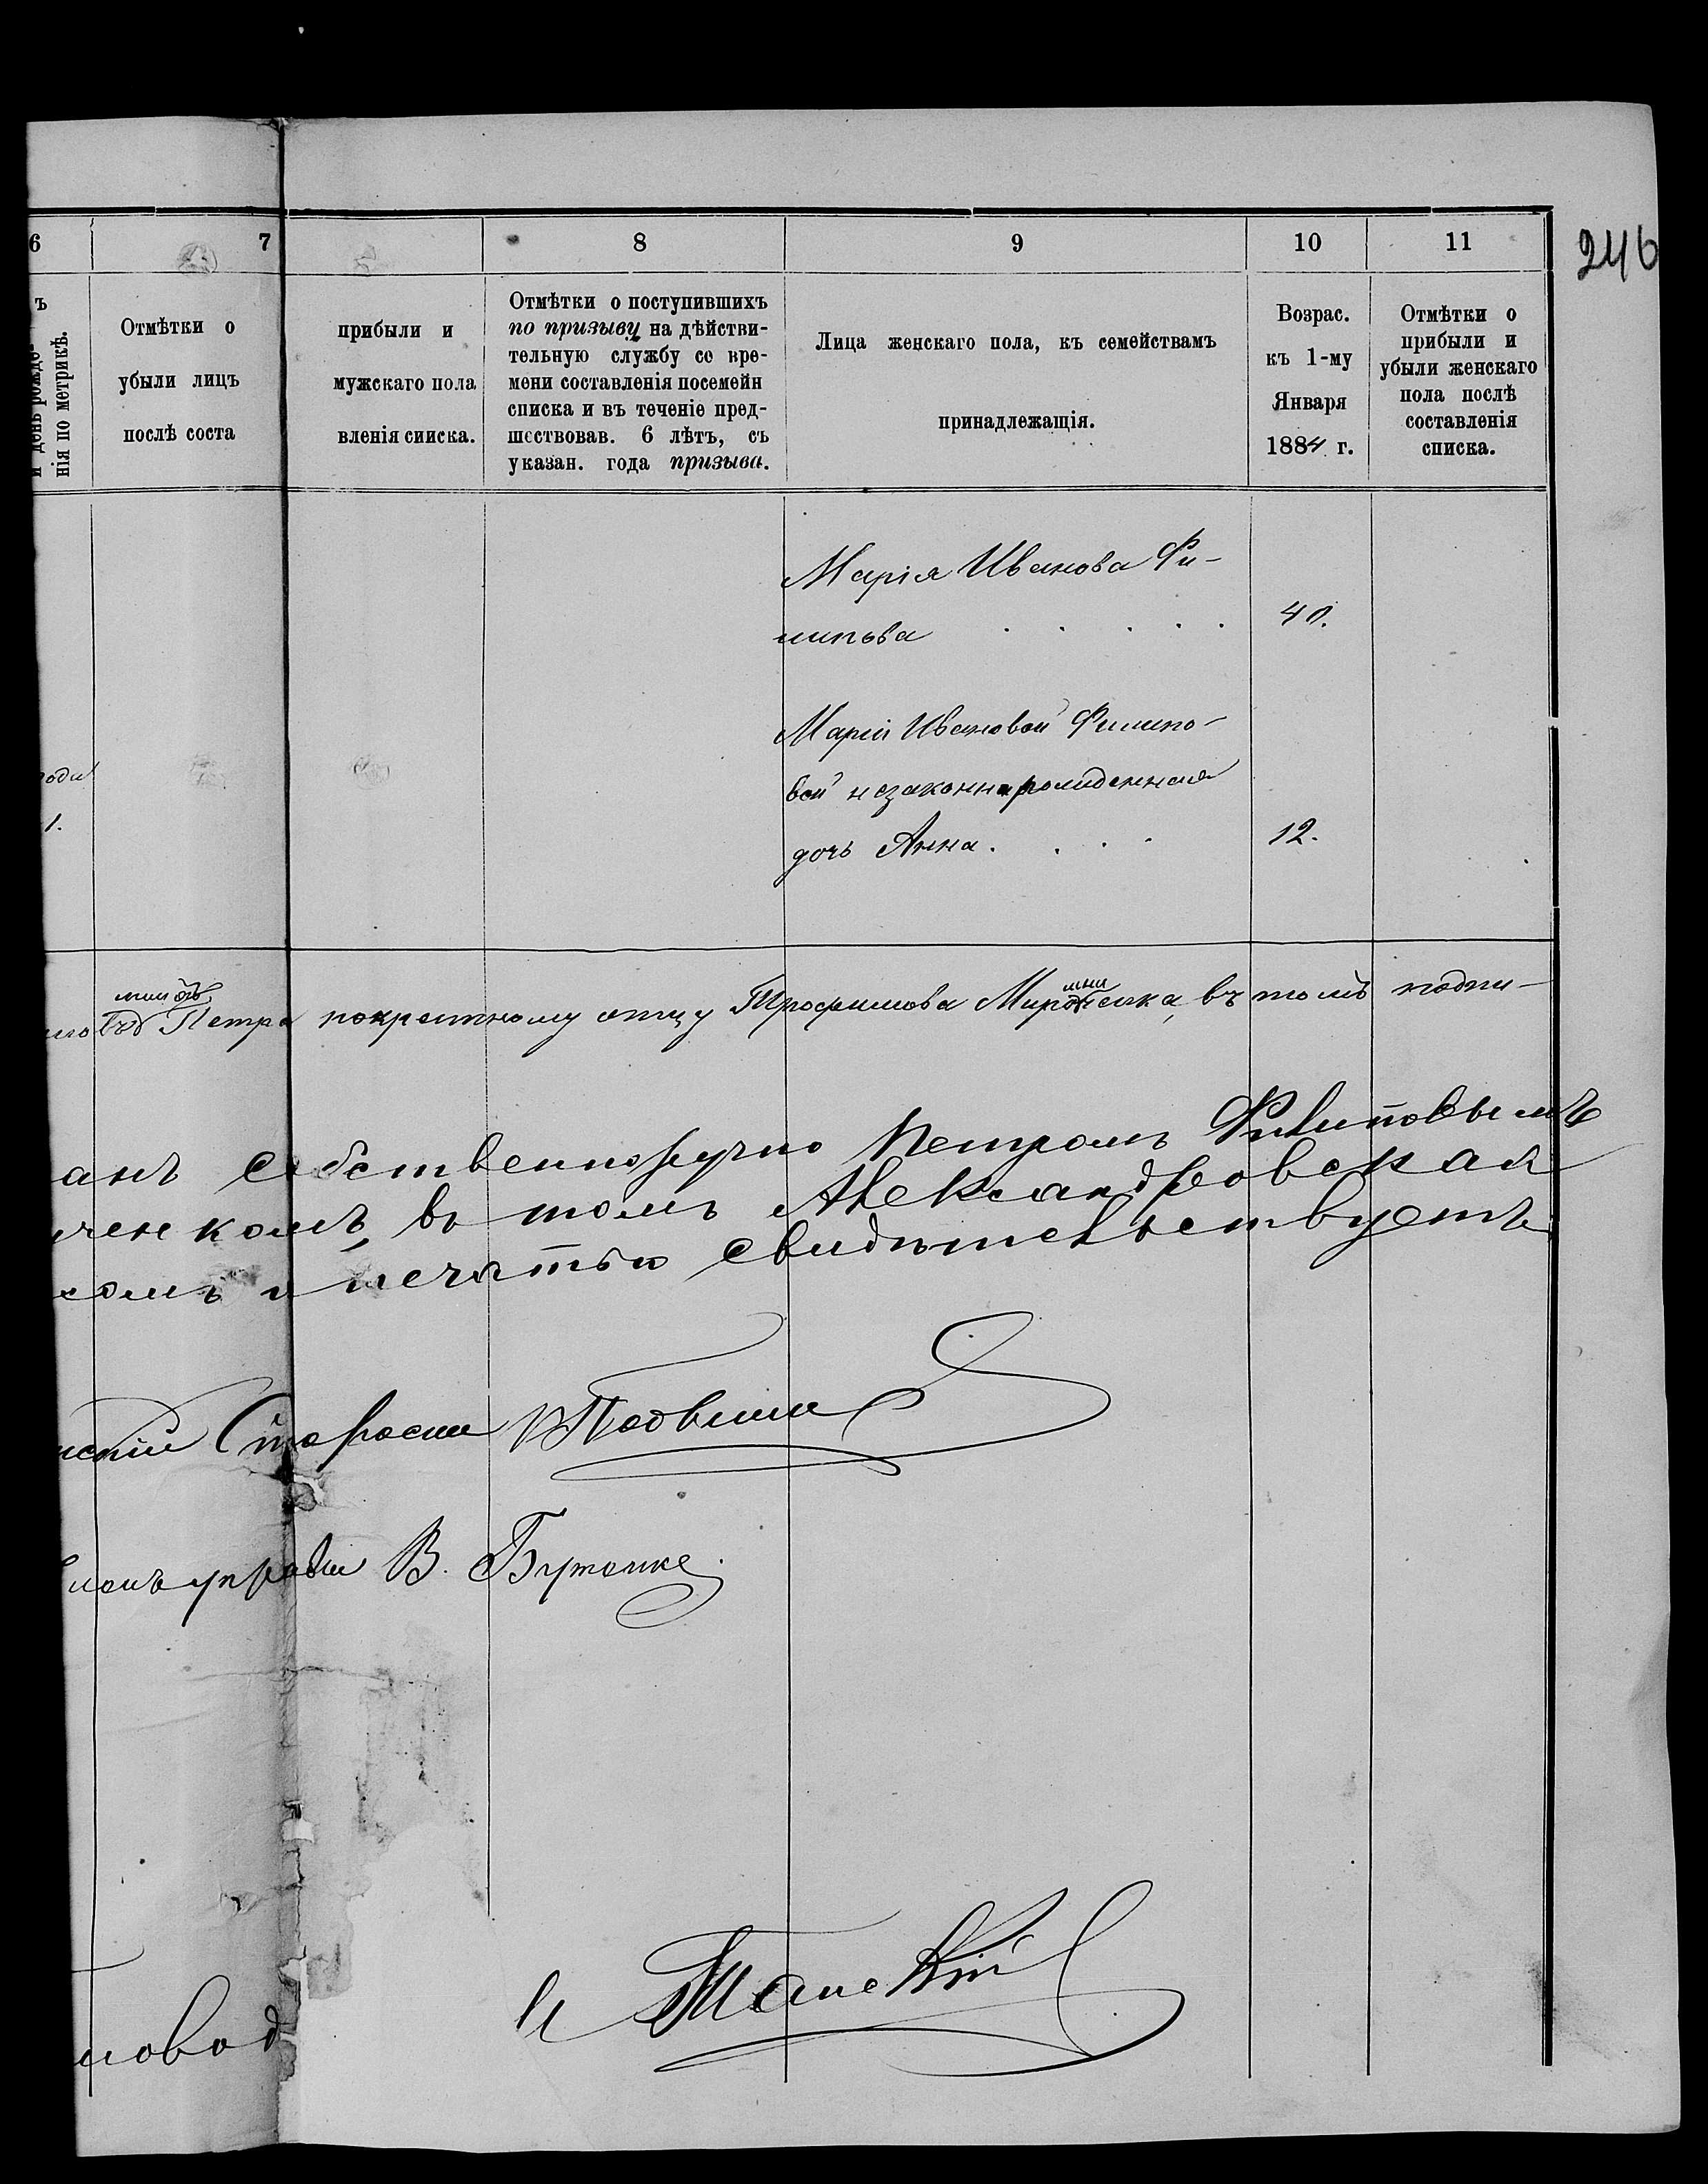 6 7 8 9 10 11
246
ъ
и день рожде-
нія по метрикѣ.
Отмѣтки о прибыли и
убыли лицъ мужскаго пола
послѣ соста вленія списка.
Отмѣтки о поступившихъ
по призыву на дѣйстви-
тельную службу со вре-
мени составленія посемейн
списка и въ теченіе пред-
шествовав. 6 лѣтъ, съ
указан. года призыва.
Лица женскаго пола, къ семействамъ
принадлежащія.
Возрас.
къ 1-му
Января
1884 г.
Отмѣтки о
прибыли и
убыли женскаго
пола послѣ
составленія
списка.
Марія Иванова Фи-
липова . . . . . 40.
Маріи Ивановой Филипо-
вой незаконнорожденная
дочь Анна. . . . 12.
1.
Петра покрестному отцу Трофимова въ томъ подпи-
анъ собственноручно Петромъ Филиповымъ
ченкомъ, въ томъ Александровская
сомъ и печатью свидѣтельствуетъ
Староста
управы В.
новод